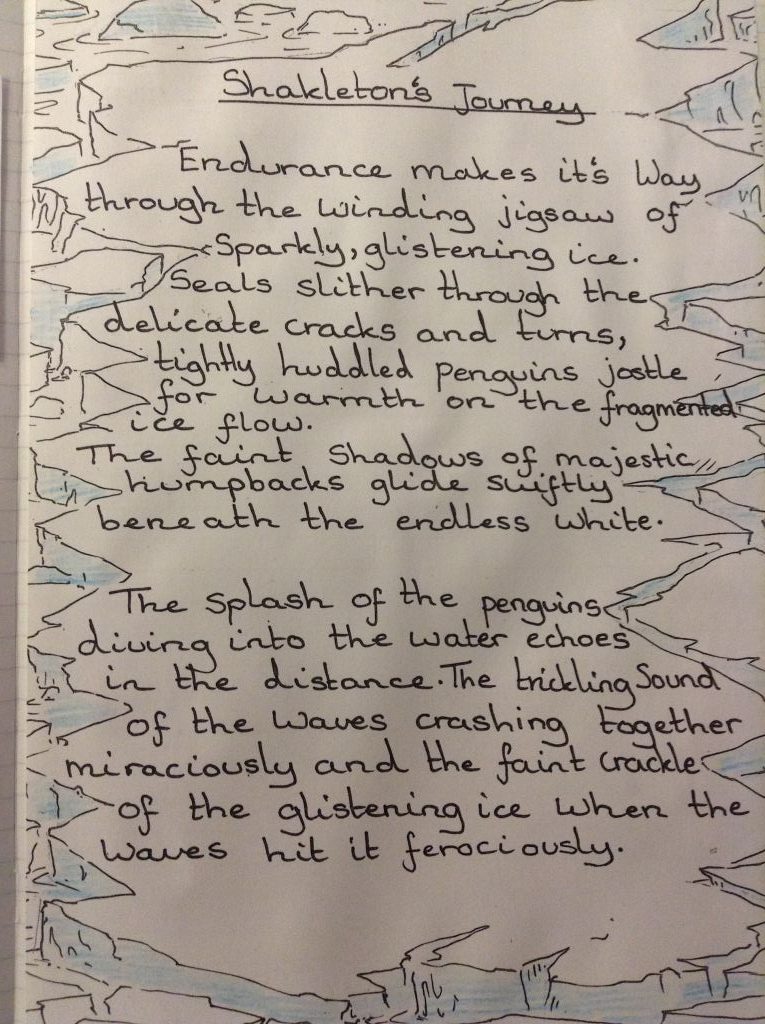 Shakleton's Journey
Endurance makes it's Way
through the winding jigsaw of
Sparkly, glistening ice.
Seals slither through the
delicate cracks and turns,
tightly huddled penguins jostle
for warmth on the fragmented
ice flow.
The faint Shadows of majestic
humpbacks glide swiftly
beneath the endless white.
The splash of the penguins
diving into the water echoes
in the distance. The trickling Sound
of the waves crashing together
miraciously and the faint crackle
of the glistening ice when the
waves hit it ferociously.